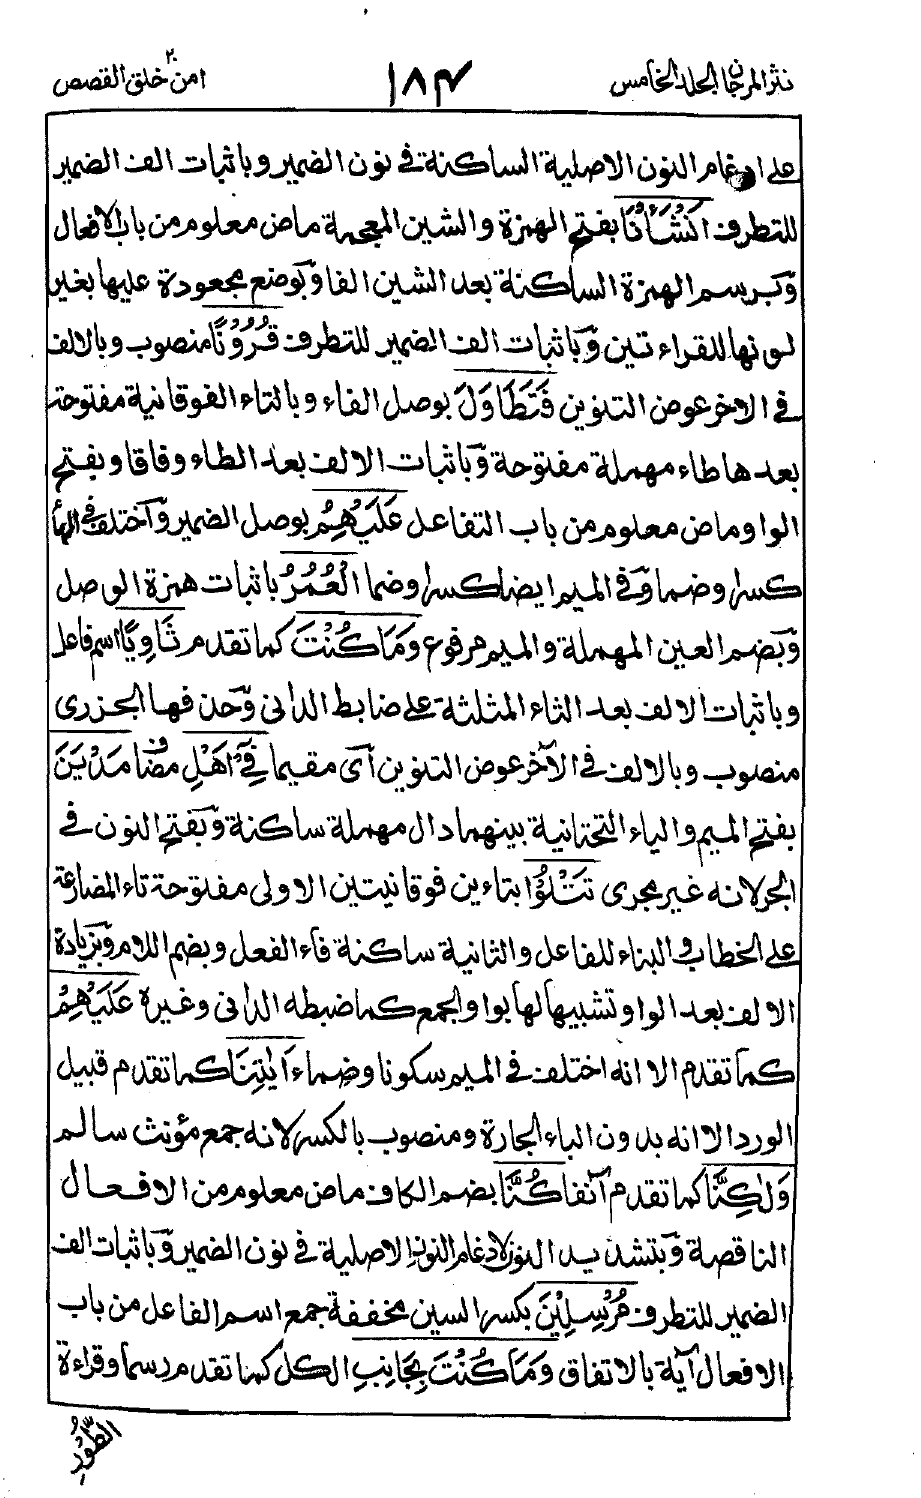 نثر المرجان الجلد الخامس
١٨٤
امن خلق ٢٠ القصص
على ادغام النون الاصلية الساكنة في نون الضمير وباثبات الف الضمير
للتطرف اَنْشَأْنَا بفتح الهمزة والشين المعجمة ماض معلوم من باب الافعال
وبرسم الهمزة الساكنة بعد الشين الفا وبوضع مجعودة عليها بغير
لونها للقراءتين وباثبات الف الضمير للتطرف قُرُوْنًا منصوب وبالالف
في الاخر عوض التنوين فَتَطَاوَلَ بوصل الفاء وبالتاء الفوقانية مفتوحة
بعدها طاء مهملة مفتوحة وباثبات الالف بعد الطاء وفاقا وبفتح
الواو ماض معلوم من باب التفاعل عَلَيْهِمُ بوصل الضمير واختلف في الهاء
كسرا وضما وفي الميم ايضا كسرا وضما الْعُمُرُ باثبات همزة الوصل
وبضم العين المهملة والميم مرفوع وَمَا كُنْتَ كما تقدم ثَاوِيًا اسم فاعل
وباثبات الالف بعد الثاء المثلثة على ضابط الداني وحذفها الجزري
منصوب وبالالف في الآخر عوض التنوين اى مقيما فِيْ اَهْلِ مضاف مَدْيَنَ
بفتح الميم والياء التحتانية بينهما دال مهملة ساكنة وبفتح النون في
الجر لانه غير مجرى تَتْلُوْا بتاءين فوقانيتين الاولى مفتوحة تاء المضارعة
على الخطاب والبناء للفاعل والثانية ساكنة فاء الفعل وبضم اللام وبزيادة
الالف بعد الواو تشبيها لها بواو الجمع كما ضبطه الداني وغيره عَلَيْهِمْ
كما تقدم الا انه اختلف في الميم سكونا وضما ءَايٰتِنَا كما تقدم قبيل
الورد الا انه بدون الباء الجارة ومنصوب بالكسر لانه جمع مؤنث سالم
وَلٰكِنَّا كما تقدم آنفا كُنَّا بضم الكاف ماض معلوم من الافعال
الناقصة وبتشديد النون لادغام النون الاصلية في نون الضمير وباثبات الف
الضمير للتطرف مُرْسِلِيْنَ بكسر السين مخففة جمع اسم الفاعل من باب
الافعال آية بالاتفاق وَمَا كُنْتَ بِجَانِبِ الكل كما تقدم رسما وقراءة
الطُّوْرِ